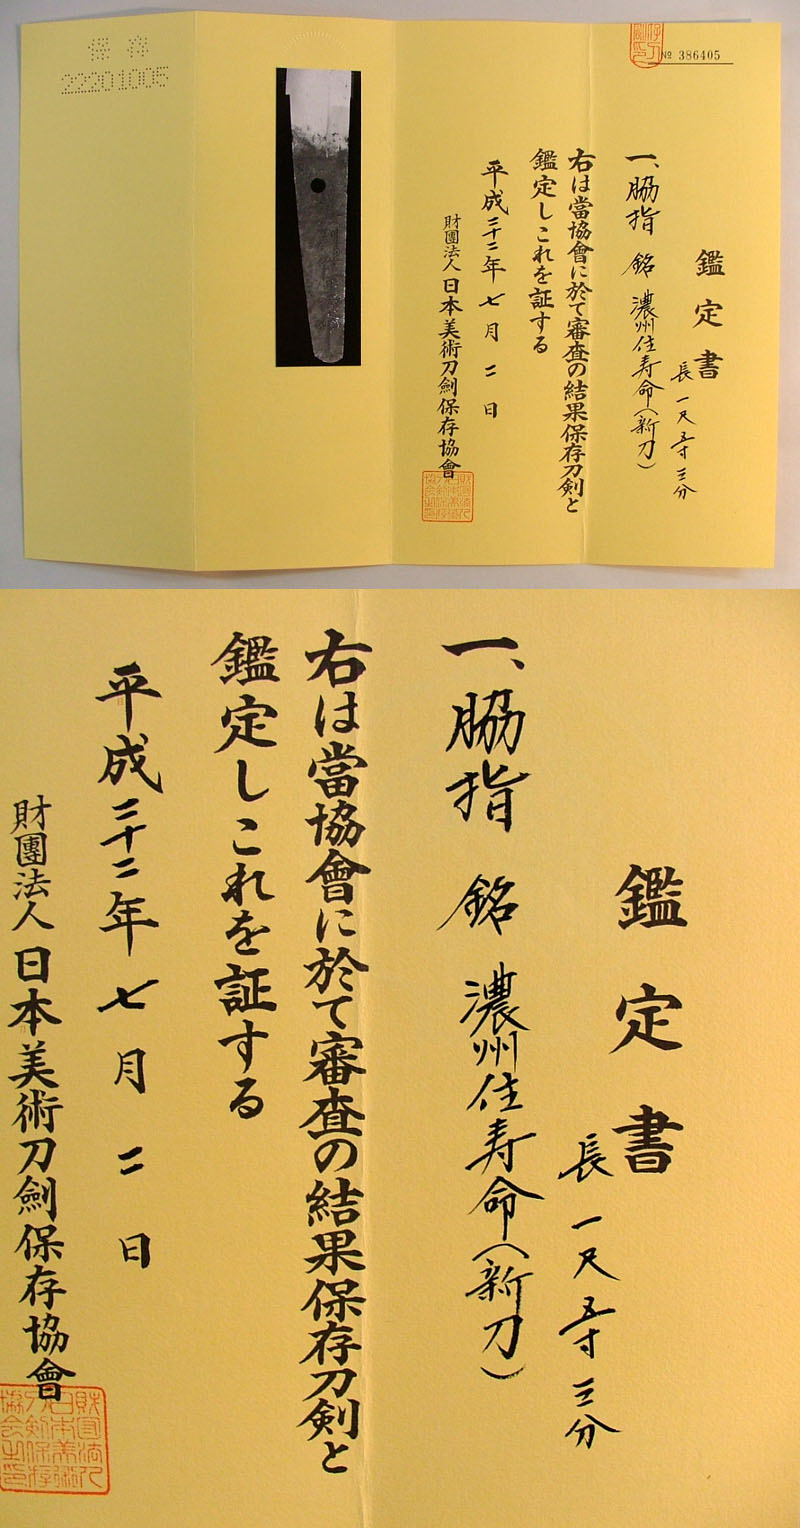 保存
22201005
№ 386405
鑑定書
一、脇指 銘 濃州住寿命(新刀)
長一尺五寸三分
右は當協會に於て審査の結果保存刀剣と
鑑定しこれを証する
平成二十二年七月二日
財團法人日本美術刀劍保存協會
鑑定書
長一尺五寸三分
一、脇指 銘 濃州住寿命(新刀)
右は當協會に於て審査の結果保存刀剣と
鑑定しこれを証する
平成二十二年七月二日
財團法人日本美術刀劍保存協會